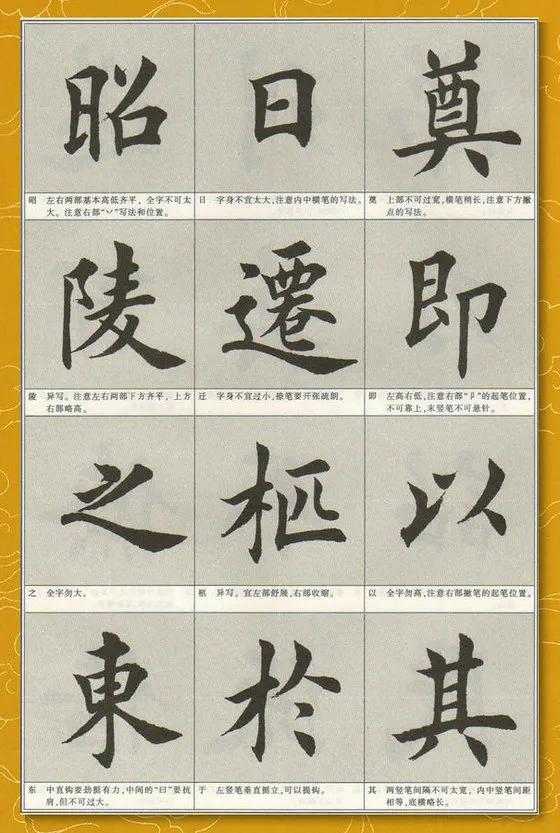 奠
奠 上部不可过宽,横笔稍长,注意下方撇
点的写法。
即
即 左高右低,注意右部“卩”的起笔位置,
不可靠上,末竖笔不可悬针。
以
以 全字勿高,注意右部撇笔的起笔位置。
其
其 两竖笔间隔不可太宽,内中竖笔间距
相等,底横略长。
日
日 字身不宜太大,注意内中横笔的写法。
遷
迁 字身不宜过小,捺笔要开张疏朗。
柩
柩 异写。宜左部舒展,右部收缩。
於
于 左竖笔垂直挺立,可以提钩。
昭
昭 左右两部基本高低齐平,全字不可太
大。注意右部“丷”写法和位置。
陵
陵 异写。注意左右两部下方齐平,上方
右部略高。
之
之 全字勿大。
東
东 中直钩要劲挺有力,中间的“曰”要抗
肩,但不可过大。